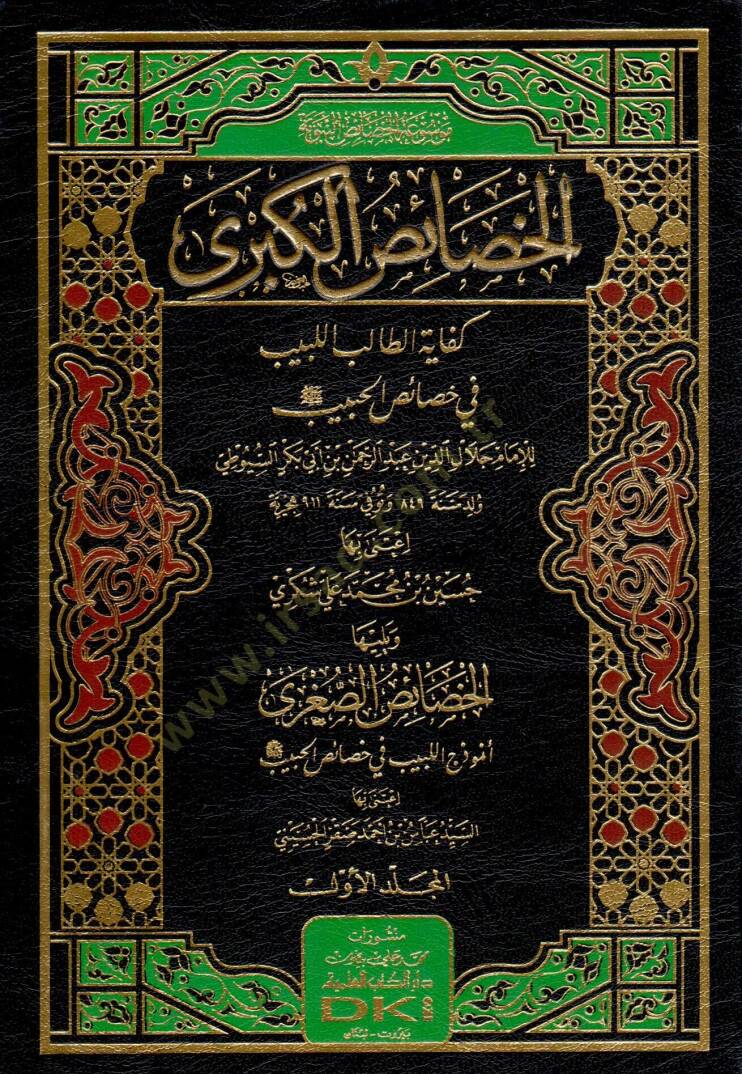 موسوعة الخصائص النبوية
الخصائص الكبرى
كفاية الطالب اللبيب
في خصائص الحبيب ﷺ
للإمام جلال الدين عبد الرحمن بن أبي بكر السيوطي
ولد سنة ٨٤٩ وتوفي سنة ٩١١ هجرية
اعتنى بها
حسين بن محمد علي شكري
ويليها
الخصائص الصغرى
أنموذج اللبيب في خصائص الحبيب ﷺ
اعتنى بها
السيد عباس بن أحمد صقر الحسيني
المجلد الأول
منشورات
محمد علي بيضون
دار الكتب العلمية
DKi
بيروت - لبنان
www.irsad.com.tr